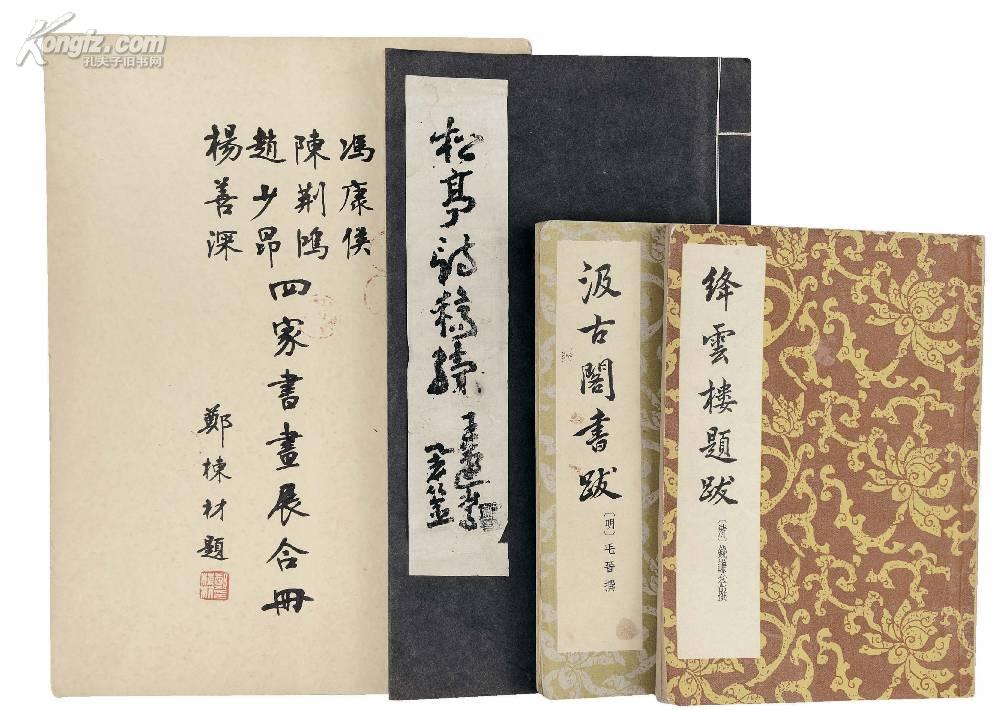 Kongfz.com
孔夫子旧书网
馮康侯
陳荆鴻
趙少昂
楊善深
四家書畫展合冊
鄭棟材題
松亭詩稿續
王蘧常
署簽
汲古閣書跋
〔明〕毛晉撰
絳雲樓題跋
〔清〕錢謙益撰